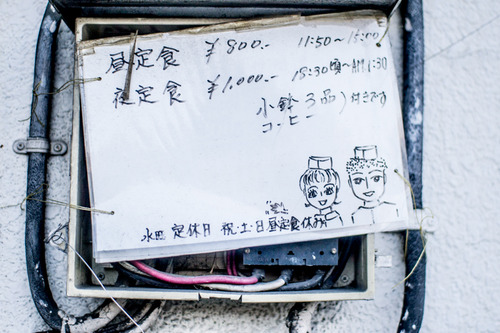 昼定食 ¥800.- 11:50~15:00
夜定食 ¥1,000.- 18:30頃~AM1:30
小鉢3品)付きです
コーヒー
水曜 定休日 祝・土・日昼定食休み